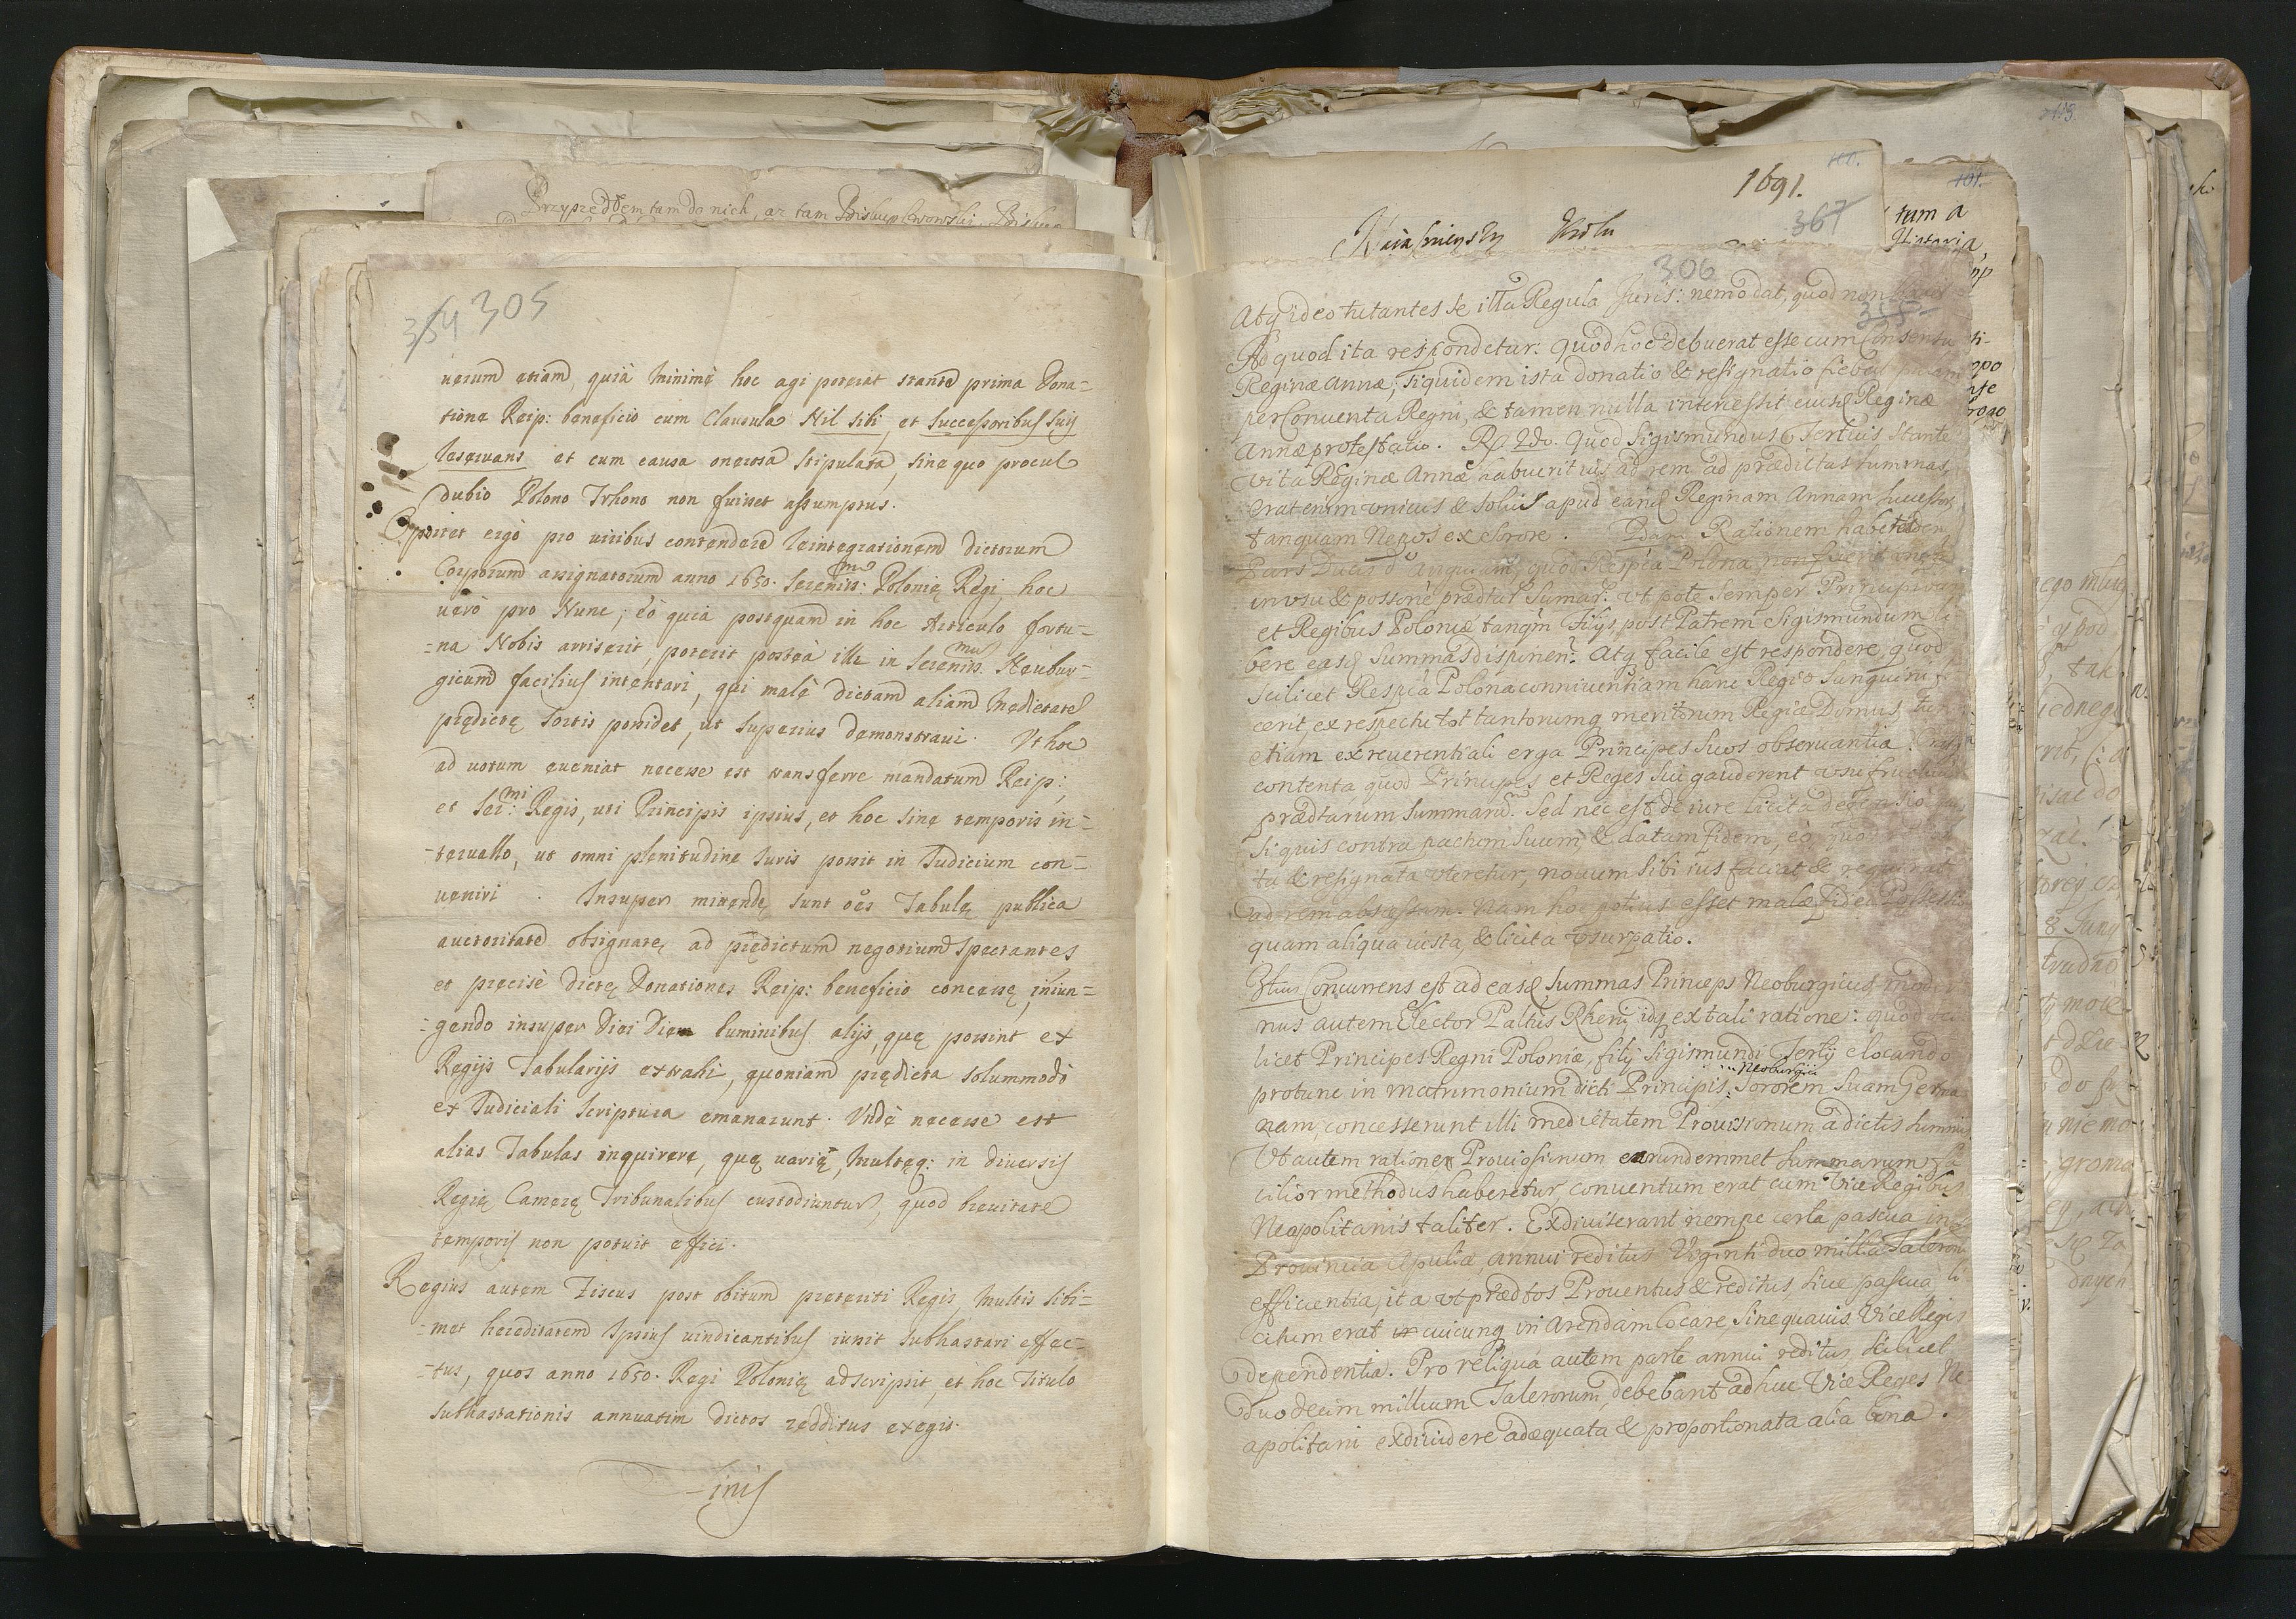 Przyszedłem tam do nich, az tam Biskup Lwowski, Biskup
354 305
uerum etiam, quià minimè hoc agi poterat stante prima Dona-
tione Reip: beneficio cum Clausula Nil sibi, et Successoribus suis
reseruans et cum causa onerosa stipulata, sine quo procul
dubio Polono Trhono non fuisset assumptus.
Oportet ergò pro uiribus contendere reintegrationem dictorum
Corporum assignatorum anno 1650. Sereniss:mo Polonię Regi, hoc
uerò pro Nunc; eò quia postquam in hoc Articulo fortu-
-na Nobis arriserit, poterit posteà illi in Sereniss.mum Neubur-
gicum facilius intentari, qui malè dictam aliam Medietatem
prędictę sortis possidet, ut superius demonstraui. Vt hoc
ad uotum eueniat necesse est transferre mandatum Reip:,
et Ser:mi Regis, uti Principis ipsius, et hoc sine temporis in-
-teruallo, ut omni plenitudine Iuris possit in Iudicium con-
ueniri. Insuper mittendę sunt oẽs Tabulę publica
auctoritate obsignatę, ad prędictum negotium spectantes
et pręcisè dictę Donationes Reip: beneficio concessę, iniun-
-gendo insuper Dici Diem luminibus alijs, quę possint ex
Regijs Tabularijs extrahi, quoniam prędicta solummodò
ex Iudiciali Scriptura emanarunt. Vndè necesse est
alias Tabulas inquirere, quę uarię, multęq: in diuersis
Regię Camerę Tribunalibus custodiuntur, quod breuitate
temporis non potuit effici.
Regius autem Fiscus post obitum preteriti Regis, multis sibi-
-met hereditatem Ipsius uindicantibus iunit subhastari effec-
-tus, quos anno 1650. Regi Polonię adscripsit, et hoc titulo
subhastationis annuatim dictos redditus exegit.
Finis
1691.
367
306
355
Atq ideo tutantes se illa Regula Juris: nemo dat, quod non
Ad quod ita respondetur: quod hoc debuerat esse cum Consensu
Reginæ Annæ; siquidem ista donatio & resignatio fiebat
per Conuenta Regni, & tamen nulla interuessit eiusd Reginæ
Annæ protestatio. Rq 2do. Quod Sigismundus Tertius stante
vita Reginæ Annæ habuerit ius ad rem ad prædictas summas,
erat enim vnicus & solus apud eand Reginam Annam successor,
tanquam Nepos ex sorore. Rationem habet
Pars Ducis quod Respca Polona non fuerit
in vsu & possone prædtar Sumar. vt pote semper Principibus
et Regibus Poloniæ tanqm Filijs, post Patrem Sigismundum li
bere easd Summas disponen. Atq facile est respondere, quod
scilicet Respca Polona conniuentiam hanc Regio Sanguini
cerit, ex respectu tot tantorumq meritorum Regiæ Domus, tum
etiam ex reuerentiali erga Principes suos obseruantia.
contenta quod Principes et Reges sui gauderent vsufructu
prædtarum summarum. Sed nec est de iure licita defensio
si quis contra pactum suum, & datam fidem, eò, quod
ta & resignata vteretur, nouum sibi ius faciat & requirat
ad rem abscessam. Nam hoc potius esset malæ fidei Possessio
quam aliqua iusta, & licita vsurpatio.
Concurrens est ad easd Summas Princeps Neoburgicus, moder
nus autem Elector Paltus Rheni, idq ex tali ratione: quod sci
licet Principes Regni Poloniæ, filij Sigismundi Tertij elocando
protunc in matrimonium dicti Principis Neoburgici Sororem suam Germa
nam, concesserunt illi medietatem Prouisionum à dictis summis.
Vt autem rationes Prouisionum earundemmet summarum fa
cilior methodus haberetur, conuentum erat cum Vice Regibus
Neapolitanis taliter. Exdiuiserant nempe certa pascua in
Prouincia Apuliæ, annui reditus Viginti duo millia Taleron
efficientia, ita vt prædtos Prouentus & reditus, siue pascua li
citum erat cuicunq in Arendam locare, sine quauis Vice Regis
dependentia. Pro reliqua autem parte annui reditus, scilicet
duodecim millium Talerorum, debebant adhuc Vice Reges Ne
apolitani exdiuidere adæquata & proportionata alia bona.